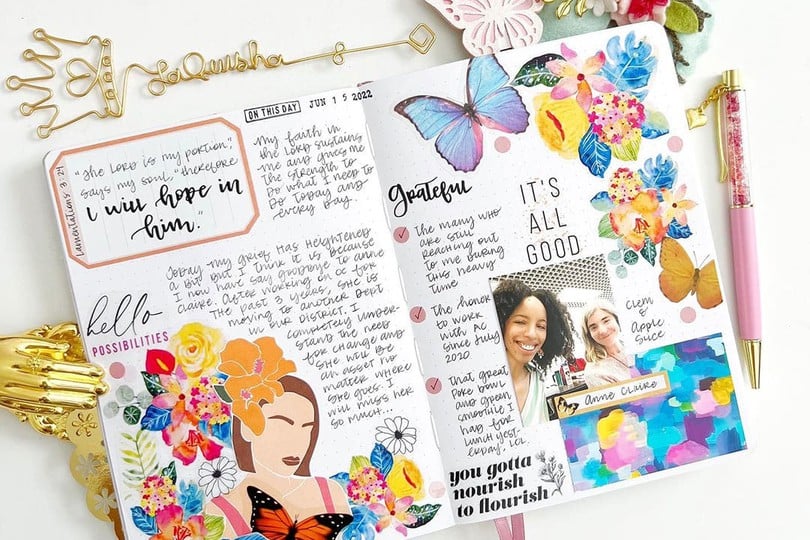 LaQuisha
ON THIS DAY JUN 15 2022
Lamentations 3:24
"The Lord is my portion",
says my soul, "therefore
I will hope in
him."
My faith in
the Lord sustains
me and gives me
the strength to
do what I need to
do today and
every day.
Today my grief has heightened
a bit but I think it is because
I now have say goodbye to Anne
Claire. After working on CC for
the past 3 years, she is
moving to another dept
in our district. I
completely under
stand the need
for change and
she will be
an asset no
matter where
she goes. I
will miss her
so much...
hello
POSSIBILITIES
Grateful
The many who
are still
reaching out
to me during
this heavy
time
The honor
to work
with AC
since July
2020
That great
poke bowl
and green
smoothie I
had for
lunch yest-
erday, LOL
IT'S
ALL
GOOD
Clem
&
Apple
Suce
Anne Claire
you gotta
nourish
to flourish